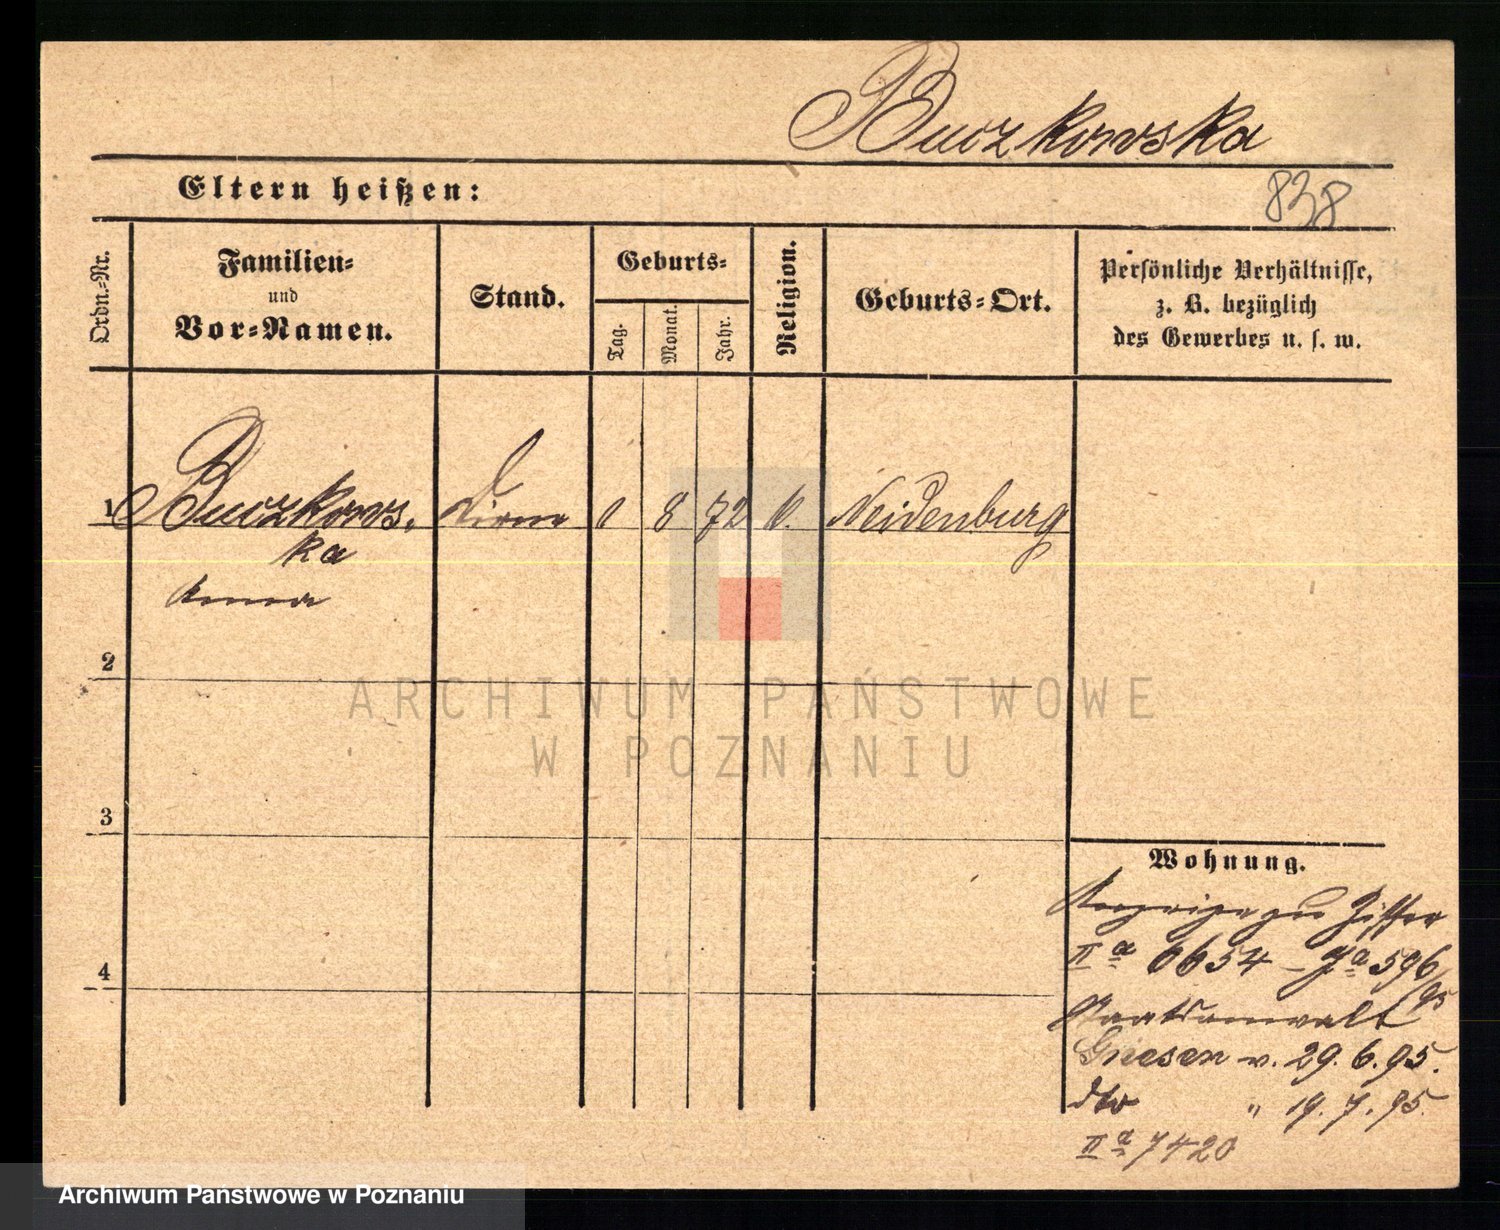 Buczkowska
Eltern heißen:
838
Ordn.-Nr.
Familien-
und
Vor-Namen.
Stand.
Geburts-
Tag.
Monat.
Jahr.
Religion.
Geburts-Ort.
Persönliche Verhältnisse,
z. B. bezüglich
des Gewerbes u. s. w.
1 Buczkows. Dirne 1 8 72 k. Neidenburg
ka
Anna
2
ARCHIWUM PAŃSTWOWE
W POZNANIU
3
Wohnung.
Anzeige zu Ziffer
IIa 6654 – Ja 596/95
4
Staatsanwalt
Gnesen v. 29.6.95.
dto " 19.7.95.
IIa 7420
Archiwum Państwowe w Poznaniu